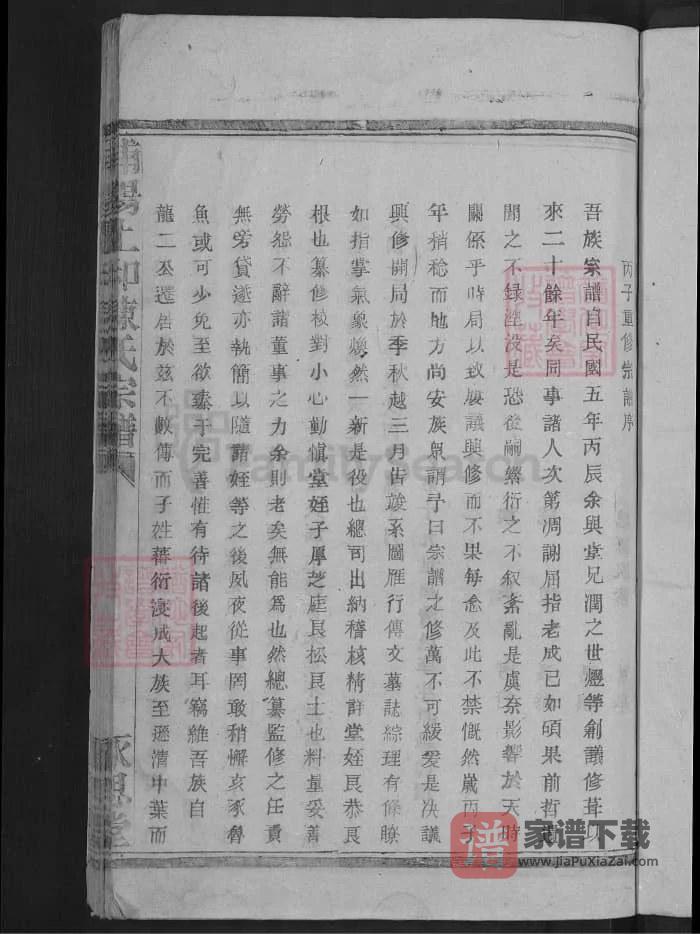 丙子重修宗譜序
吾族宗譜自民國五年丙辰余與堂兄潤之世燈等創議修葺以
來二十餘年矣同事諸人次第凋謝屈指老成已如碩果前哲
聞之不録湮没是恐後嗣繁衍之不叙紊亂是虞奈影響於天時
關係乎時局以致屢議興修而不果每念及此不禁慨然歲丙子
年稍稔而地方尚安族衆謂予曰宗譜之修萬不可緩爰是决議
興修開局於季秋越三月告竣系圖雁行傳文墓誌綜理有條瞭
如指掌氣象煥然一新是役也總司出納稽核精詳堂姪良恭良
根也纂修校對小心勤慎堂姪子厚芝庭良松良士也料量妥善
勞怨不辭諸董事之力余則老矣無能爲也然總纂監修之任責
無旁貸遂亦執簡以隨諸姪等之後夙夜從事罔敢稍懈亥豕魯
魚或可少免至欲臻于完善惟有待諸後起者耳竊維吾族自
龍二公遷居於兹不數傳而子姓蕃衍寖成大族至遜清中葉而
陳氏宗譜
家谱下载
www.jiaPuXiaZai.com
FamilySearch